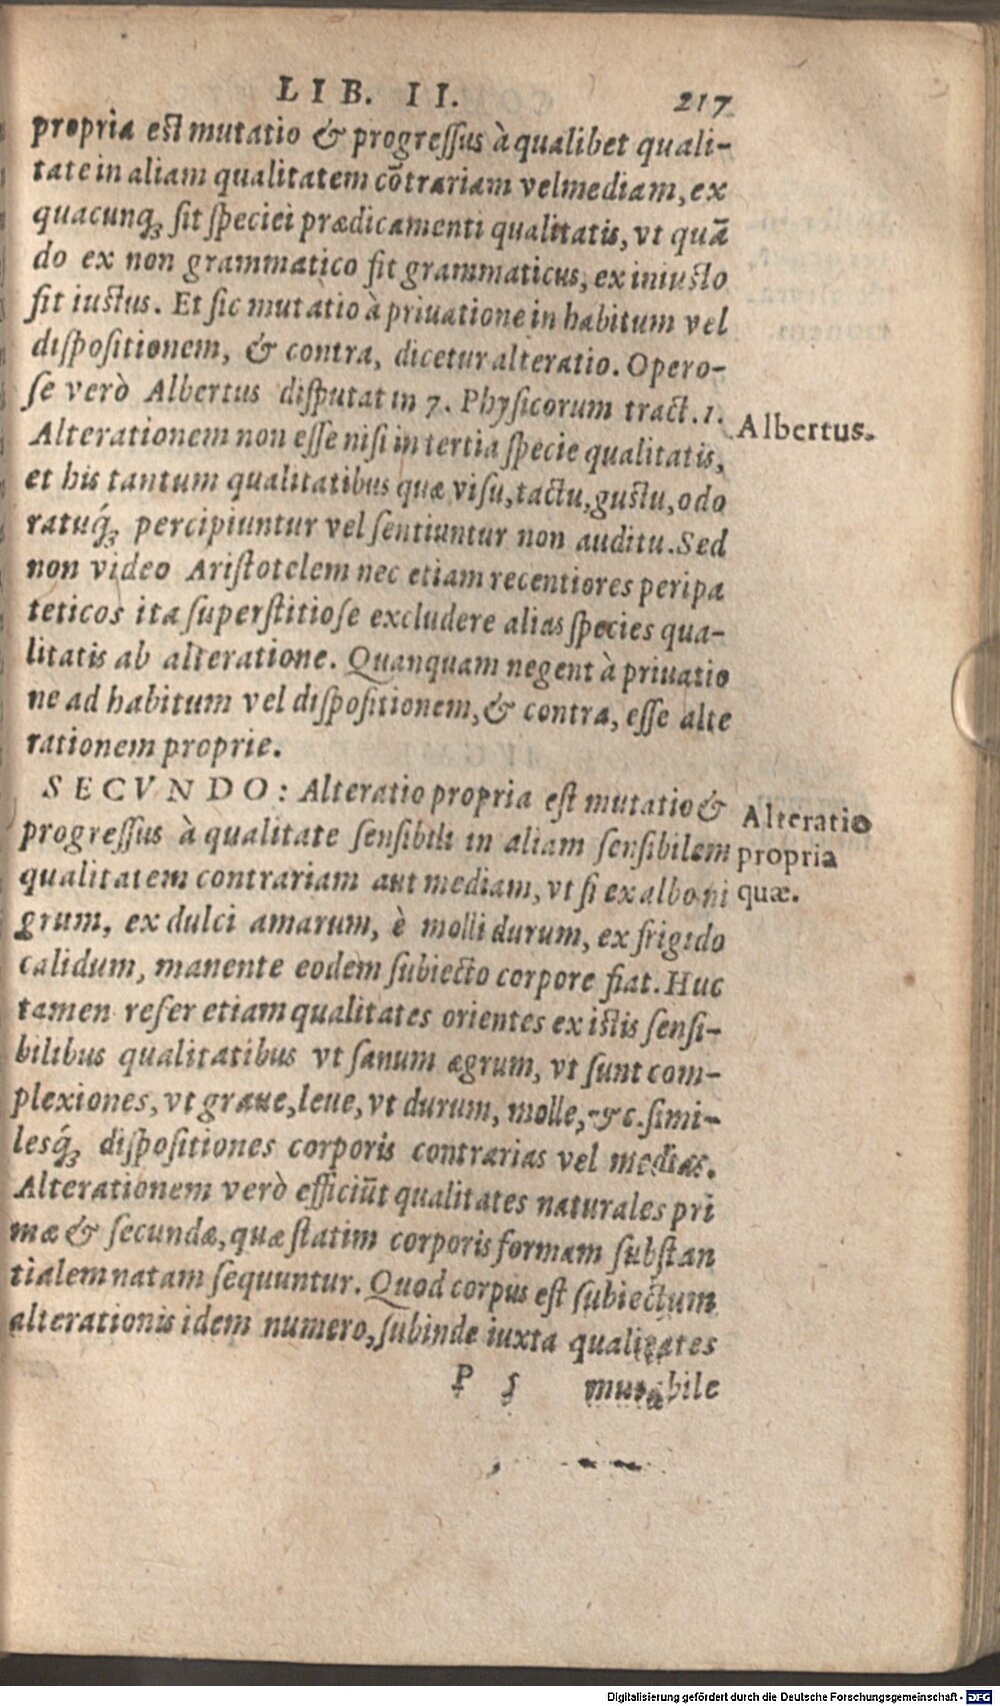 LIB. II. 217
propria est mutatio & progressus à qualibet quali-
tate in aliam qualitatem cõtrariam vel mediam, ex
quacunq; sit speciei prædicamenti qualitatis, vt quã
do ex non grammatico fit grammaticus, ex iniusto
fit iustus. Et sic mutatio à priuatione in habitum vel
dispositionem, & contra, dicetur alteratio. Opero-
se verò Albertus disputat in 7. Physicorum tract. 1.
Albertus.
Alterationem non esse nisi in tertia specie qualitatis,
et his tantum qualitatibus quæ visu, tactu, gustu, odo
ratuq́; percipiuntur vel sentiuntur non auditu. Sed
non video Aristotelem nec etiam recentiores peripa
teticos ita superstitiose excludere alias species qua-
litatis ab alteratione. Quanquam negent à priuatio
ne ad habitum vel dispositionem, & contra, esse alte
rationem proprie.
SECVNDO: Alteratio propria est mutatio &
progressus à qualitate sensibili in aliam sensibilem
qualitatem contrariam aut mediam, vt si ex albo ni
grum, ex dulci amarum, è molli durum, ex frigido
Alteratio
propria
quæ.
calidum, manente eodem subiecto corpore fiat. Huc
tamen refer etiam qualitates orientes ex istis sensi-
bilibus qualitatibus vt sanum ægrum, vt sunt com-
plexiones, vt graue, leue, vt durum, molle, &c. simi-
lesq́; dispositiones corporis contrarias vel medias.
Alterationem verò efficiũt qualitates naturales pri
mæ & secundæ, quæ statim corporis formam substan
tialem natam sequuntur. Quod corpus est subiectum
alterationis idem numero, subinde iuxta qualitates
P 5 mutabile
Digitalisierung gefördert durch die Deutsche Forschungsgemeinschaft - DFG